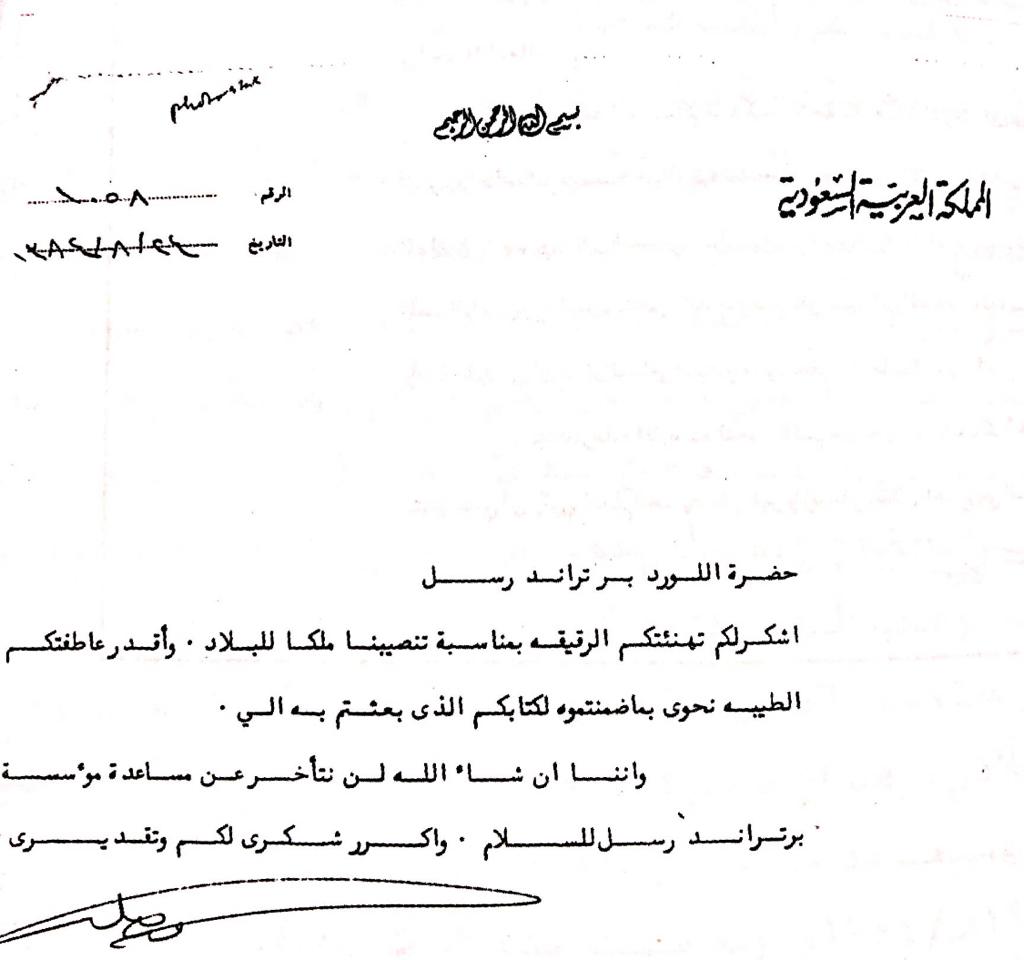 photostat
بسم الله الرحمن الرحيم
المملكة العربية السعودية
الرقم ١٠٥٨
التاريخ
حضرة اللورد برتراند رسل
اشكرلكم تهنئتكم الرقيقه بمناسبة تنصيبنا ملكا للبلاد ٠ وأقدر عاطفتكم
الطيبه نحوى بماضمنتموه لكتابكم الذى بعثتم به الي ٠
واننا ان شاء الله لن نتأخر عن مساعدة موءسسة
برتراند رسل للسلام ٠ واكرر شكرى لكم وتقديرى
فيصل